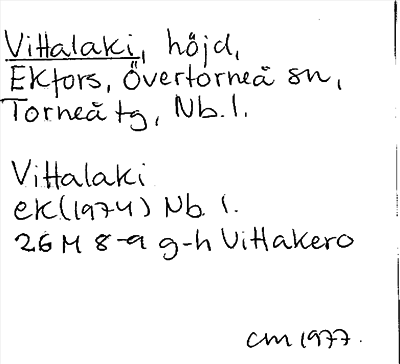 Vittalaki, höjd,
Ekfors, Övertorneå sn,
Torneå tg, Nb. l.
Vittalaki
ek (1974) Nb. l.
26 M 8-9 g-h Vittakero
CM 1977.